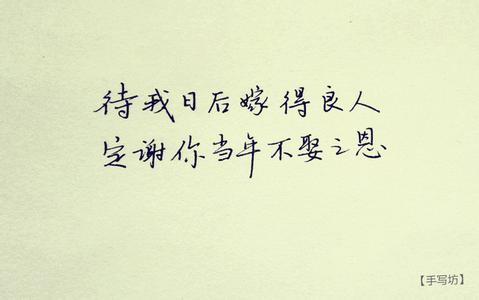 待我日后嫁得良人
定谢你当年不娶之恩
【手写坊】